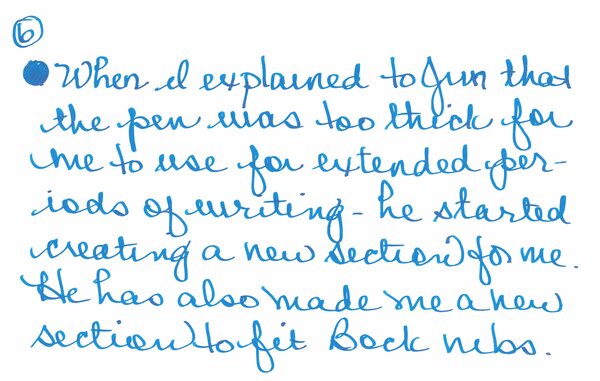 6
• When I explained to Jim that
the pen was too thick for
me to use for extended per-
iods of writing - he started
creating a new section for me.
He has also made me a new
section to fit Bock nibs.